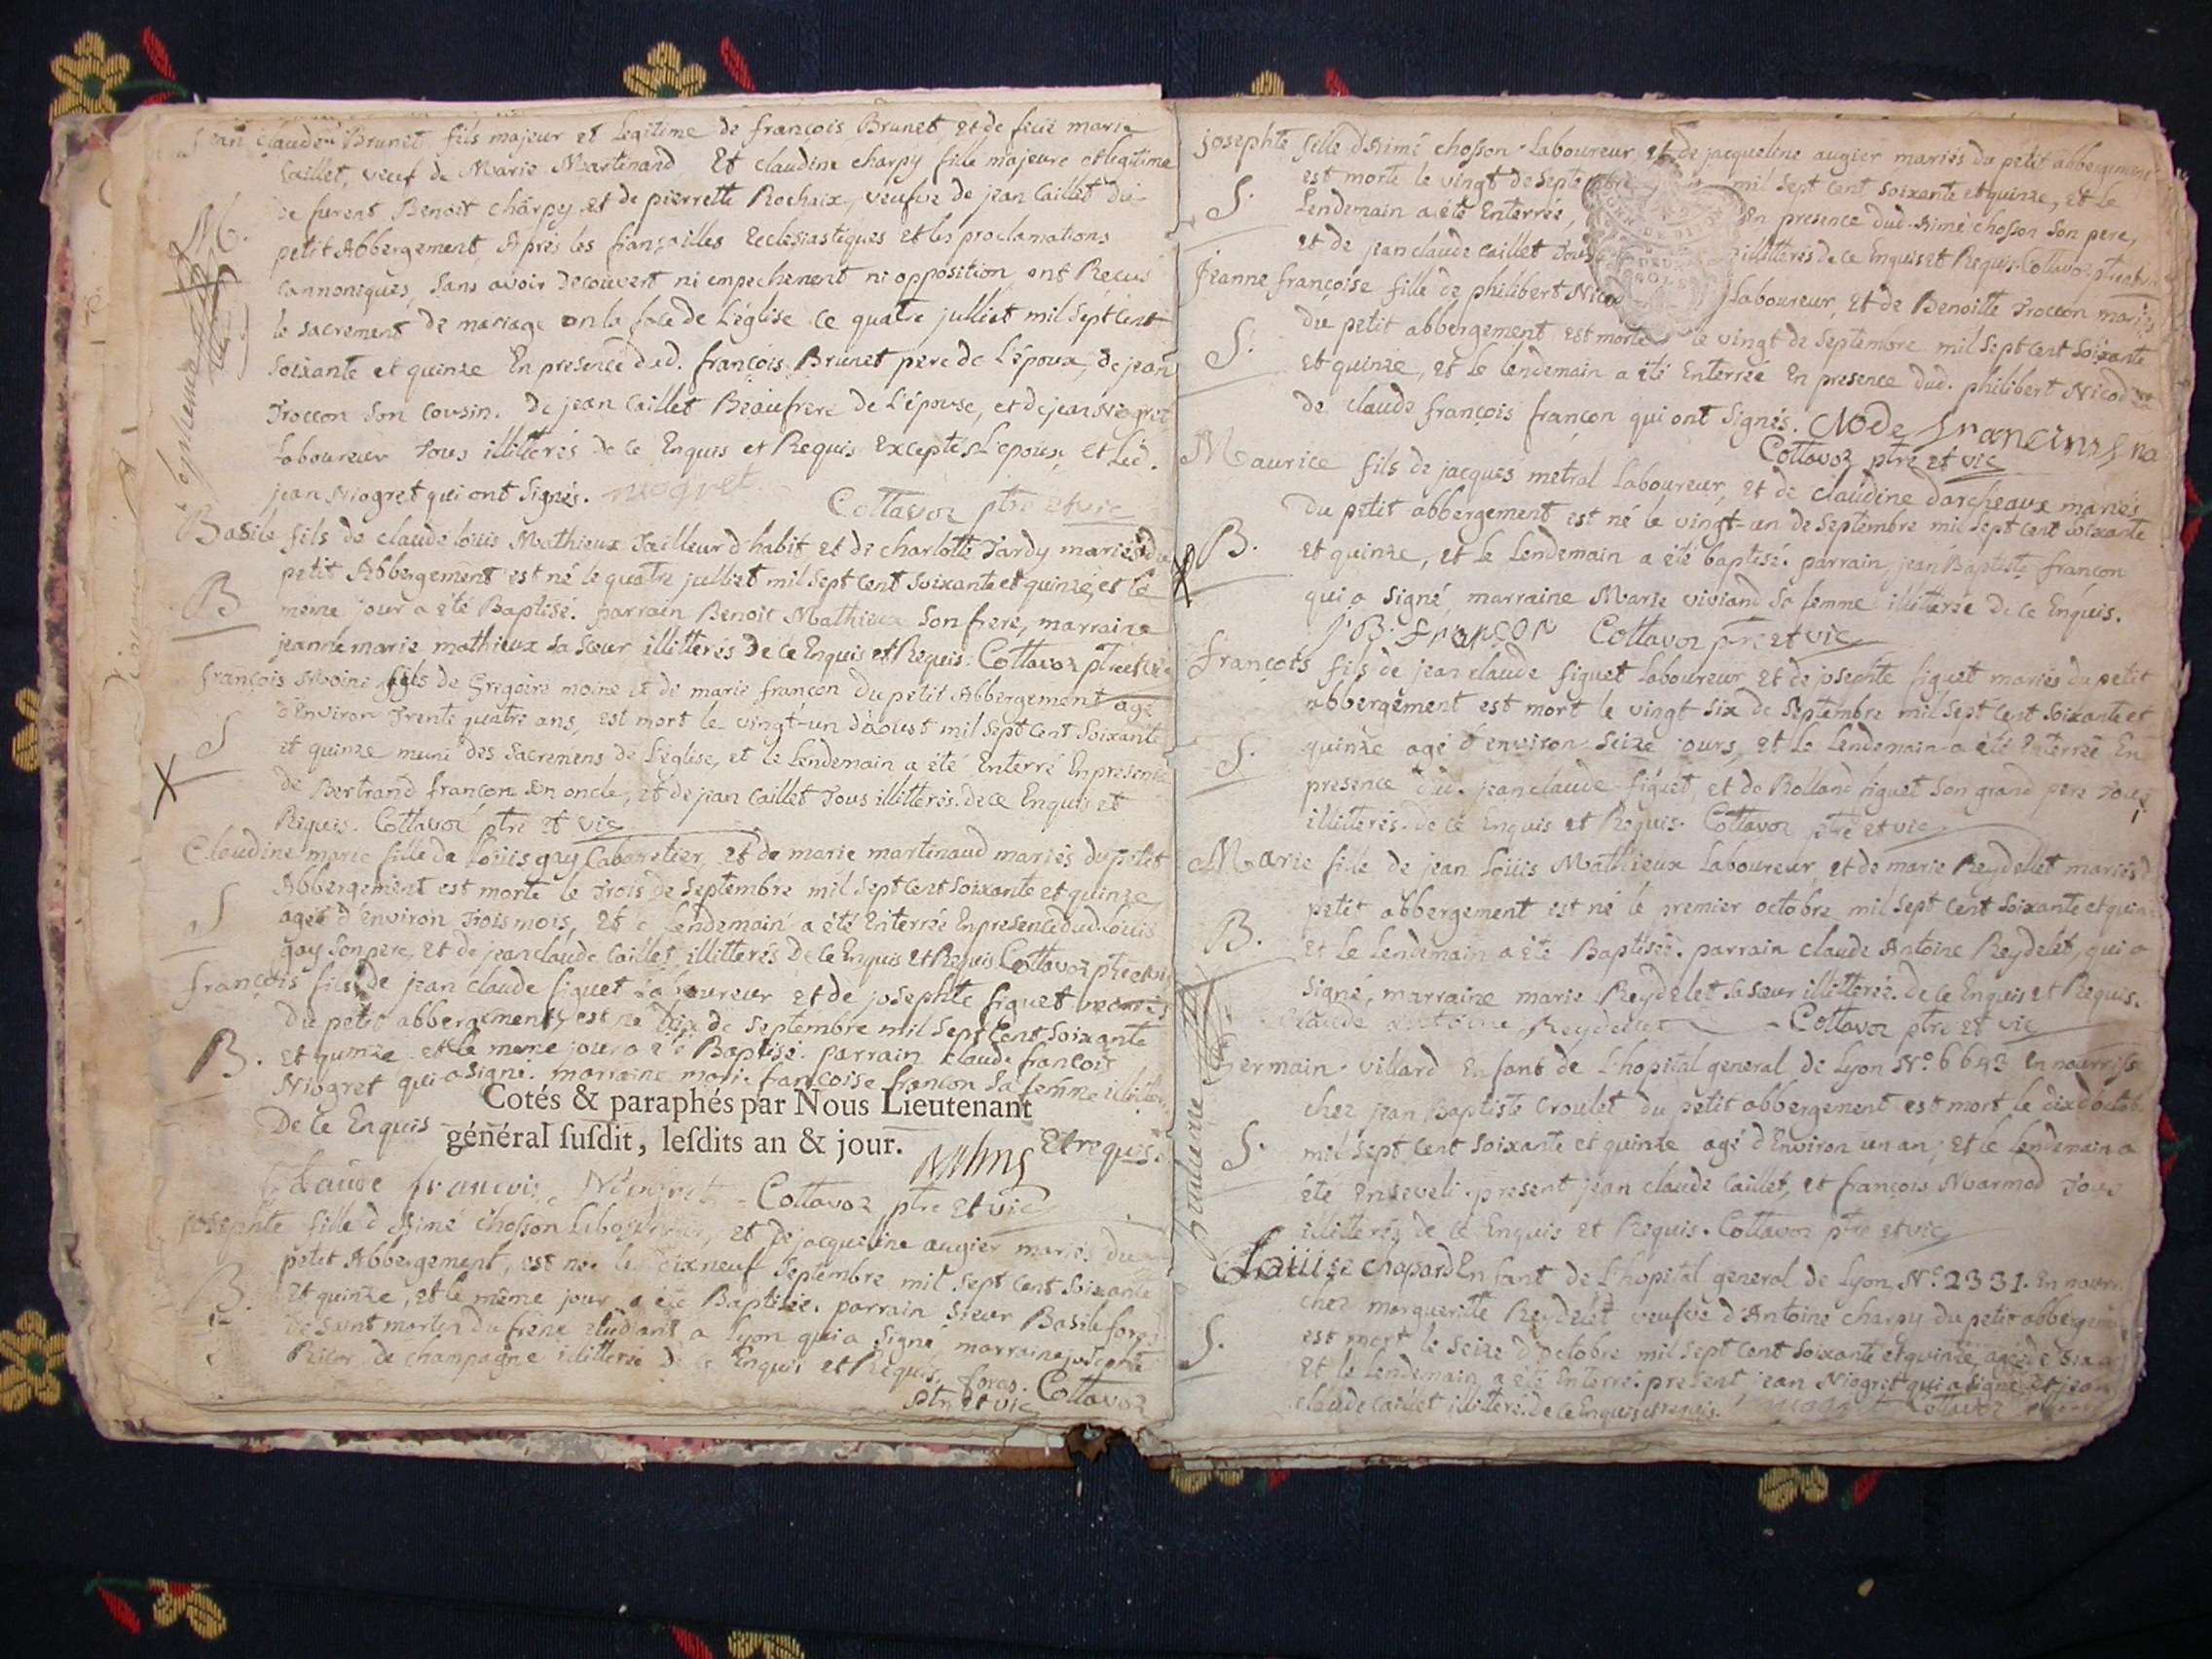 Jean Claude Brunet fils majeur et Legitime de françois Brunet, et de feüe marie
Caillet, veuf de Marie Martinand Et claudine charpy fille majeure et legitime
de furent Benoit charpy et de pierrette Rochaix, veufve de jean Caillet du
M.
petit Abbergement, Après les fiançailles Ecclesiastiques et les proclamations
cannoniques, sans avoir decouvert ni empechement ni opposition ont Recus
le sacrement de mariage en la face de L'église ce quatre julliet mil sept cent
soixante et quinze En presence dud. françois Brunet pere de L'époux, de jean
Troccon son cousin. De jean Caillet Beaufrere de L'épouse, et de jean Niogret
Laboureur tous illitterés de ce Enquis et Requis Exceptés L'epoux et Led.
jean Niogret qui ont signés. niogret Cottavoz ptre et vic
Basile fils de claude loüis Mathieux Tailleur d'habit et de charlotte Tardy mariés du
petit Abbergement est né le quatre julliet mil sept cent soixante et quinze, et le
B
même jour a été Baptisé. parrain Benoit Mathieux son frere, marraine
jeanne marie mathieux sa sœur illitterés de ce Enquis et Requis. Cottavoz ptre et vic
françois Moine fils de Gregoire moine et de marie françon du petit Abbergement agé
d'Environ Trente quatre ans, est mort le vingt-un d'aoust mil sept cent soixante
S
et quinze muni des sacremens de L'église, et le Lendemain a été Enterré En presence
de Bertrand françon son oncle, et de jean Caillet Tous illitterés. de ce Enquis et
Requis. Cottavoz ptre et vic
Claudine marie fille de Loüis gay Cabaretier, et de marie martinaud mariés du petit
Abbergement est morte le Trois de septembre mil sept cent soixante et quinze,
S
agée d'environ Trois mois, et le Lendemain a été Enterrée En presence dud. Louis
gay son pere, et de jean claude Caillet illitterés De ce Enquis et Requis Cottavoz ptre et vic
françois fils de jean claude figuet Laboureur et de josephte figuet mariés
Du petit abbergement, est né dix de septembre mil sept cent soixante
B.
et quinze et le meme jour a été Baptisé. parrain claude françois
Niogret qui a signé. marraine marie françoise françon sa femme
Cotés & paraphés par Nous Lieutenant
De ce Enquis Et requis.
général susdit, lesdits an & jour.
Claude francois Niogret Cottavoz ptre et vic
josephte fille d'Aimé chosson Laboureur, et de jacqueline augier mariés du
petit Abbergement, est née le dixneuf septembre mil sept cent soixante
B.
et quinze, et le même jour a été Baptisée. parrain sieur Basile foras
de saint martin du frene etudiant a Lyon qui a signé, marraine josephte
de champagne illitterée de ce Enquis et Requis. foras. Cottavoz
ptre et vic
josephte fille d'Aimé chosson Laboureur, et de jacqueline augier mariés du petit abbergement
est morte le vingt de septembre mil sept cent soixante et quinze, et le
S.
Lendemain a été Enterrée, En presence dud. Aimé chosson son pere,
et de jean claude caillet Tous illitterés de ce Enquis et Requis. Cottavoz ptre et vic
Jeanne françoise fille de philibert Nicod Laboureur, et de Benoitte Troccon mariés
du petit abbergement est morte le vingt de septembre mil sept cent soixante
S.
et quinze, et le lendemain a été Enterrée En presence dud. philibert Nicod et
de claude françois françon qui ont signés.
Cottavoz ptre et vic
Maurice fils de jacques metral Laboureur, et de claudine darcheaux mariés
Du petit abbergement est né le vingt-un de septembre mil sept cent soixante
B.
et quinze, et le Lendemain a été baptisé. parrain, jean Baptiste françon
qui a signé, marraine Marie viviand sa femme illitterée de ce Enquis.
J. B. françon Cottavoz ptre et vic
françois fils de jean claude figuet Laboureur et de josephte figuet mariés du petit
abbergement est mort le vingt six de septembre mil sept cent soixante et
S.
quinze agé d'environ seize jours, et le Lendemain a été Enterré En
presence dud. jean claude figuet, et de Rolland figuet son grand pere Tous
illitterés. de ce Enquis et Requis. Cottavoz ptre et vic
Marie fille de jean Loüis Mathieux Laboureur, et de marie Reydellet mariés d
petit abbergement est né le premier octobre mil sept cent soixante et quinze
B.
et le Lendemain a été Baptisée. parrain claude Antoine Reydelet, qui a
signé, marraine marie Reydelet sa sœur illitterée. de ce Enquis et Requis.
Claude Antoine Reydellet Cottavoz ptre et vic
Germain villard Enfant de L'hopital general de Lyon N° 6643 En nourrisse
chez jean Baptiste Croulet du petit abbergement est mort le dix d'octobre
S.
mil sept cent soixante et quinze agé d'Environ un an, et le Lendemain a
été Enseveli. present jean claude Caillet, et françois Marmod Tous
illitterés de ce Enquis et Requis. Cottavoz ptre et vic
Loüise chapard Enfant de L'hopital general de Lyon, N° 2331. En nourri
chez margueritte Reydelet veufve d'Antoine charpy du petit abbergement
S.
est mort le seize d'octobre mil sept cent soixante et quinze, agée de six a
et le Lendemain a été Enterré. present, jean Niogret qui a signé, et jean
claude Caillet illitteré. de ce Enquis et requis. niogret Cottavoz